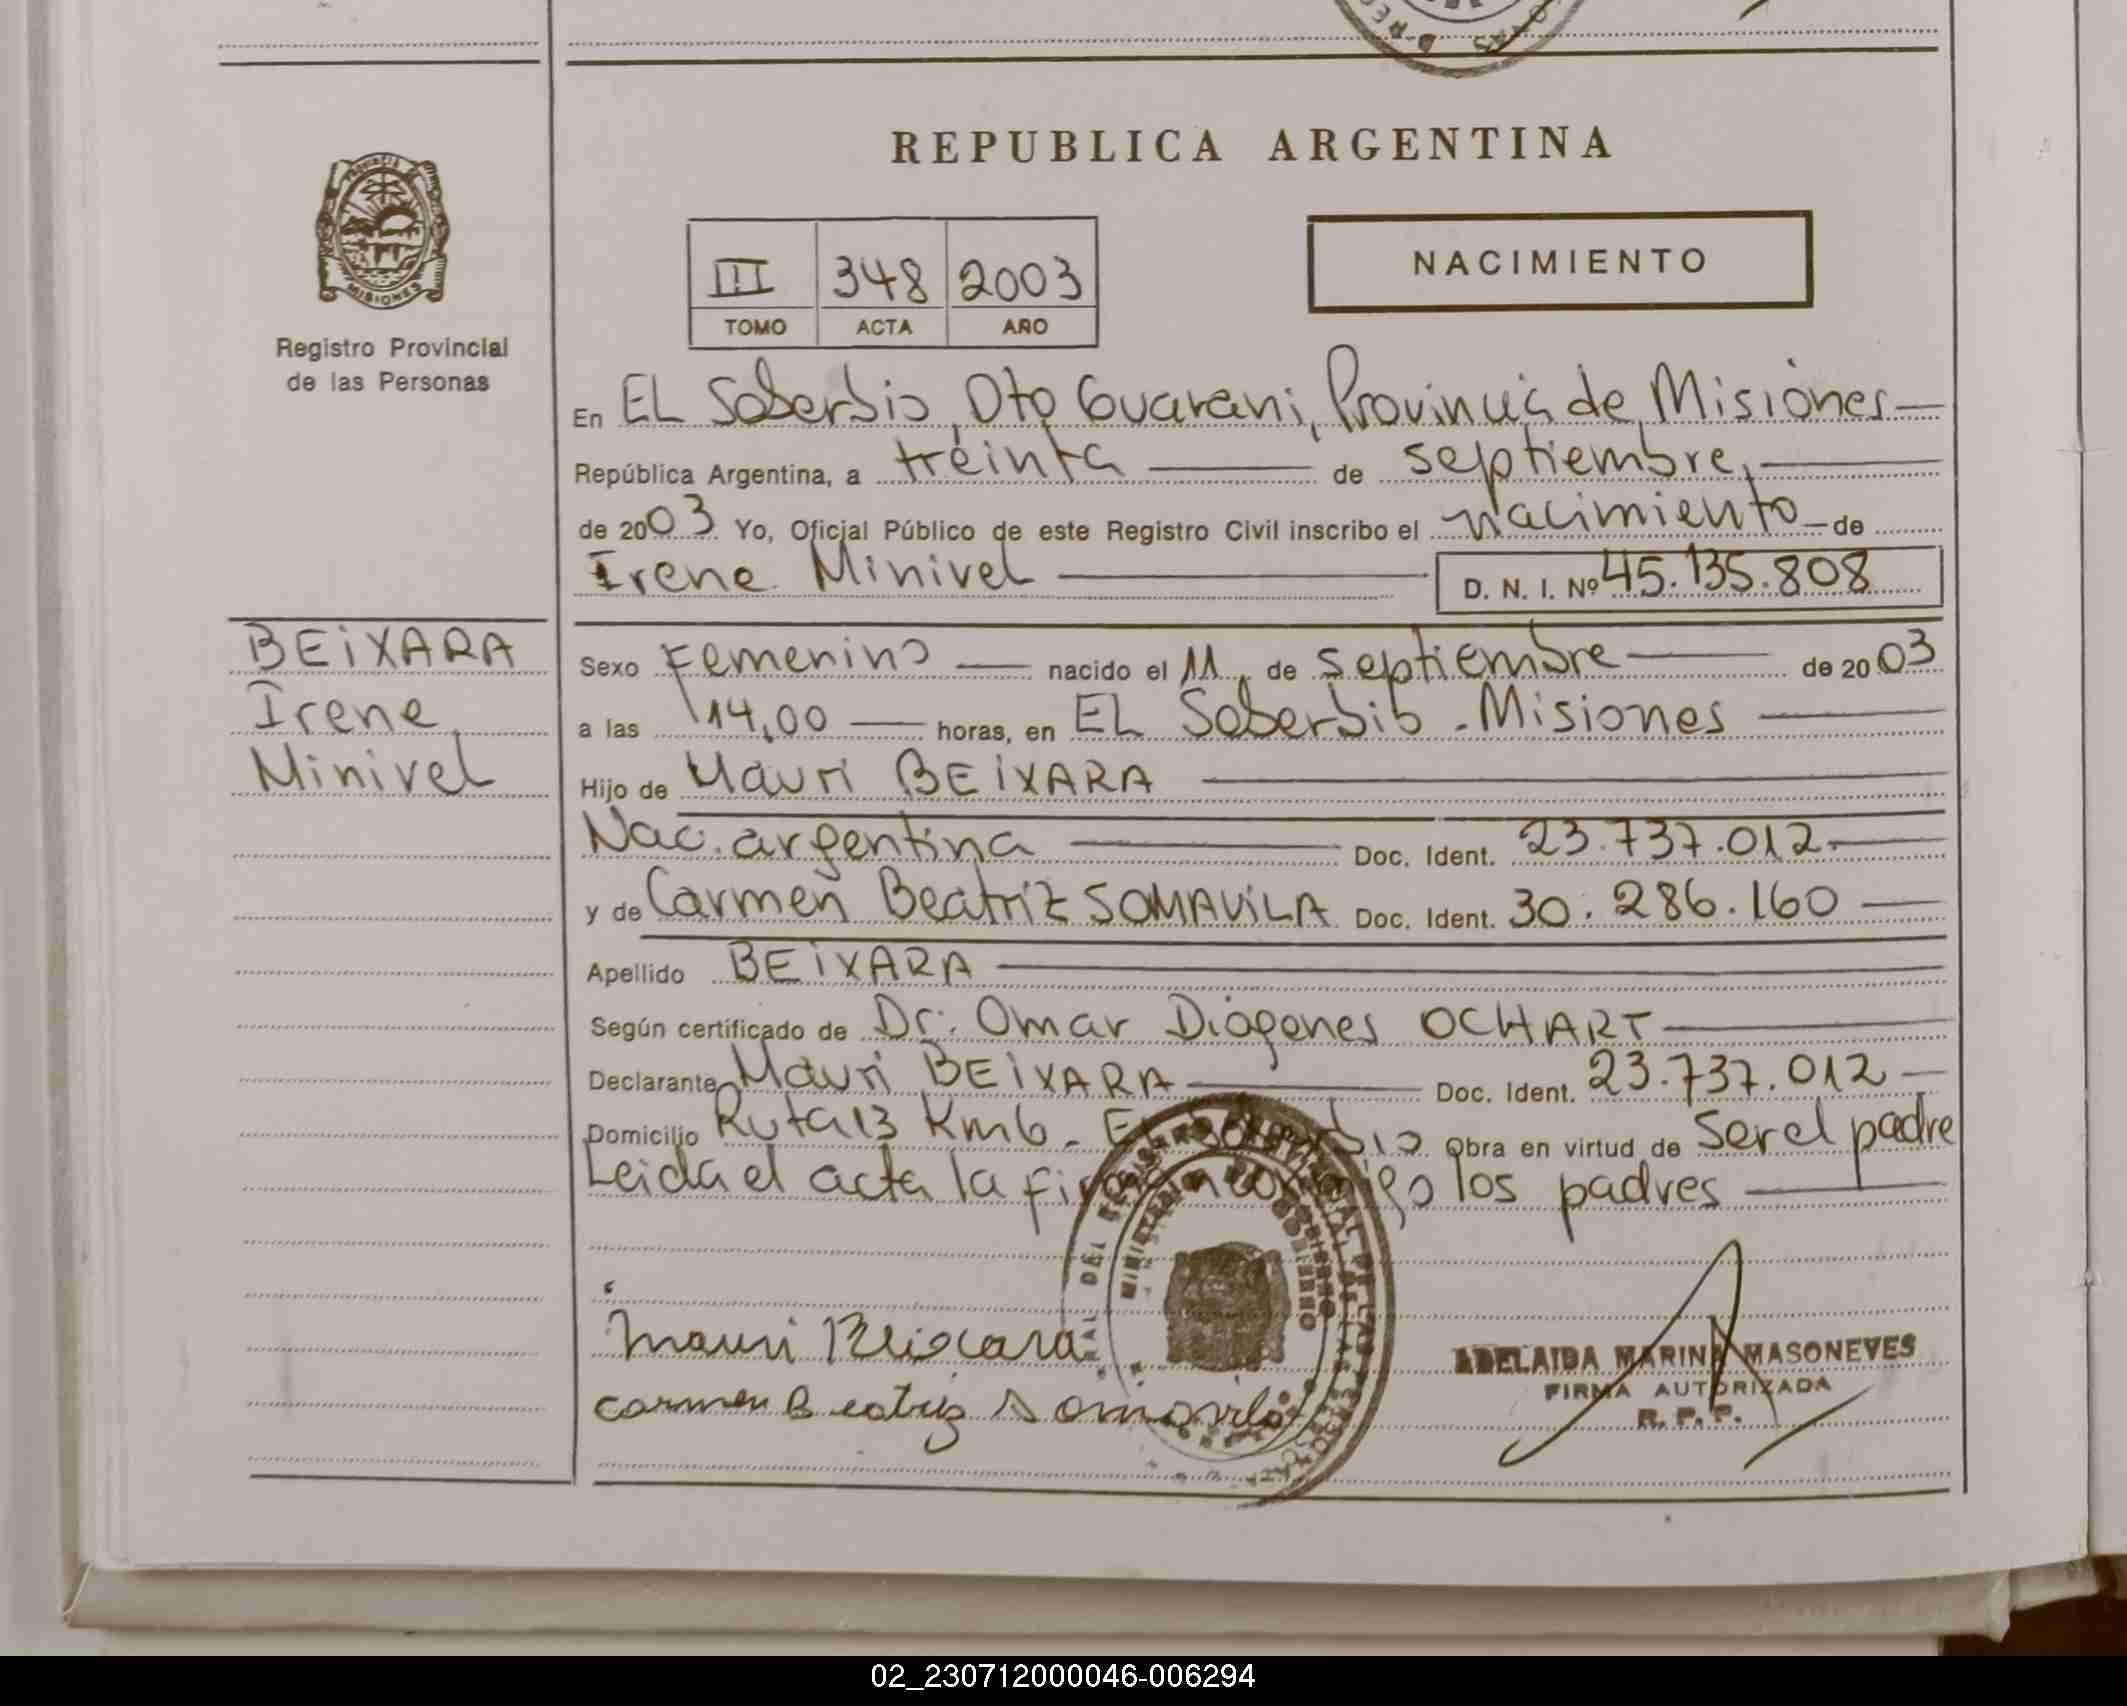 REPUBLICA ARGENTINA
PROVINCIA DE
MISIONES
Registro Provincial
de las Personas
III 348 2003
TOMO ACTA AÑO
NACIMIENTO
En EL Soberbio, Dto Guarani, Provincia de Misiones
República Argentina, a treinta de septiembre,
de 2003 Yo, Oficial Público de este Registro Civil inscribo el nacimiento de
Irene Minivel D. N. I. Nº 45.135.808
BEIXARA
Irene
Minivel
Sexo Femenino nacido el 11 de septiembre de 2003
a las 14,00 horas, en EL Soberbio - Misiones
Hijo de Mauri BEIXARA
Nac. argentina Doc. Ident. 23.737.012
y de Carmen Beatriz SOMAVILA Doc. Ident. 30.286.160
Apellido BEIXARA
Según certificado de Dr. Omar Diógenes OCHART
Declarante Mauri BEIXARA Doc. Ident. 23.737.012
Domicilio Ruta 13 Km 6 - El Soberbio Obra en virtud de Ser el padre
Leida el acta la firman conmigo los padres
Mauri Beixara
carmen Beatriz Somavila
ADELAIDA MARINA MASONEVES
FIRMA AUTORIZADA
R. P. P.
02_230712000046-006294